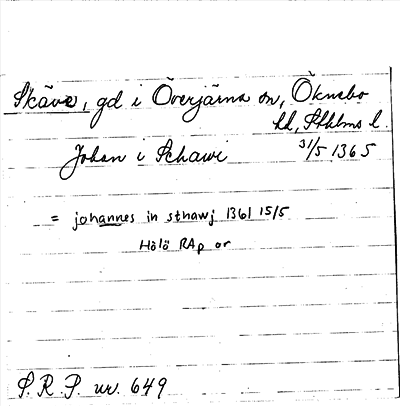 Skäve, gd i Överjärna sn, Öknebo
hd, Sthlms l.
Johan i Schawi 31/5 1365
= johannes in sthawj 1361 15/5
Hölö RAp or
S.R.P. nr. 649